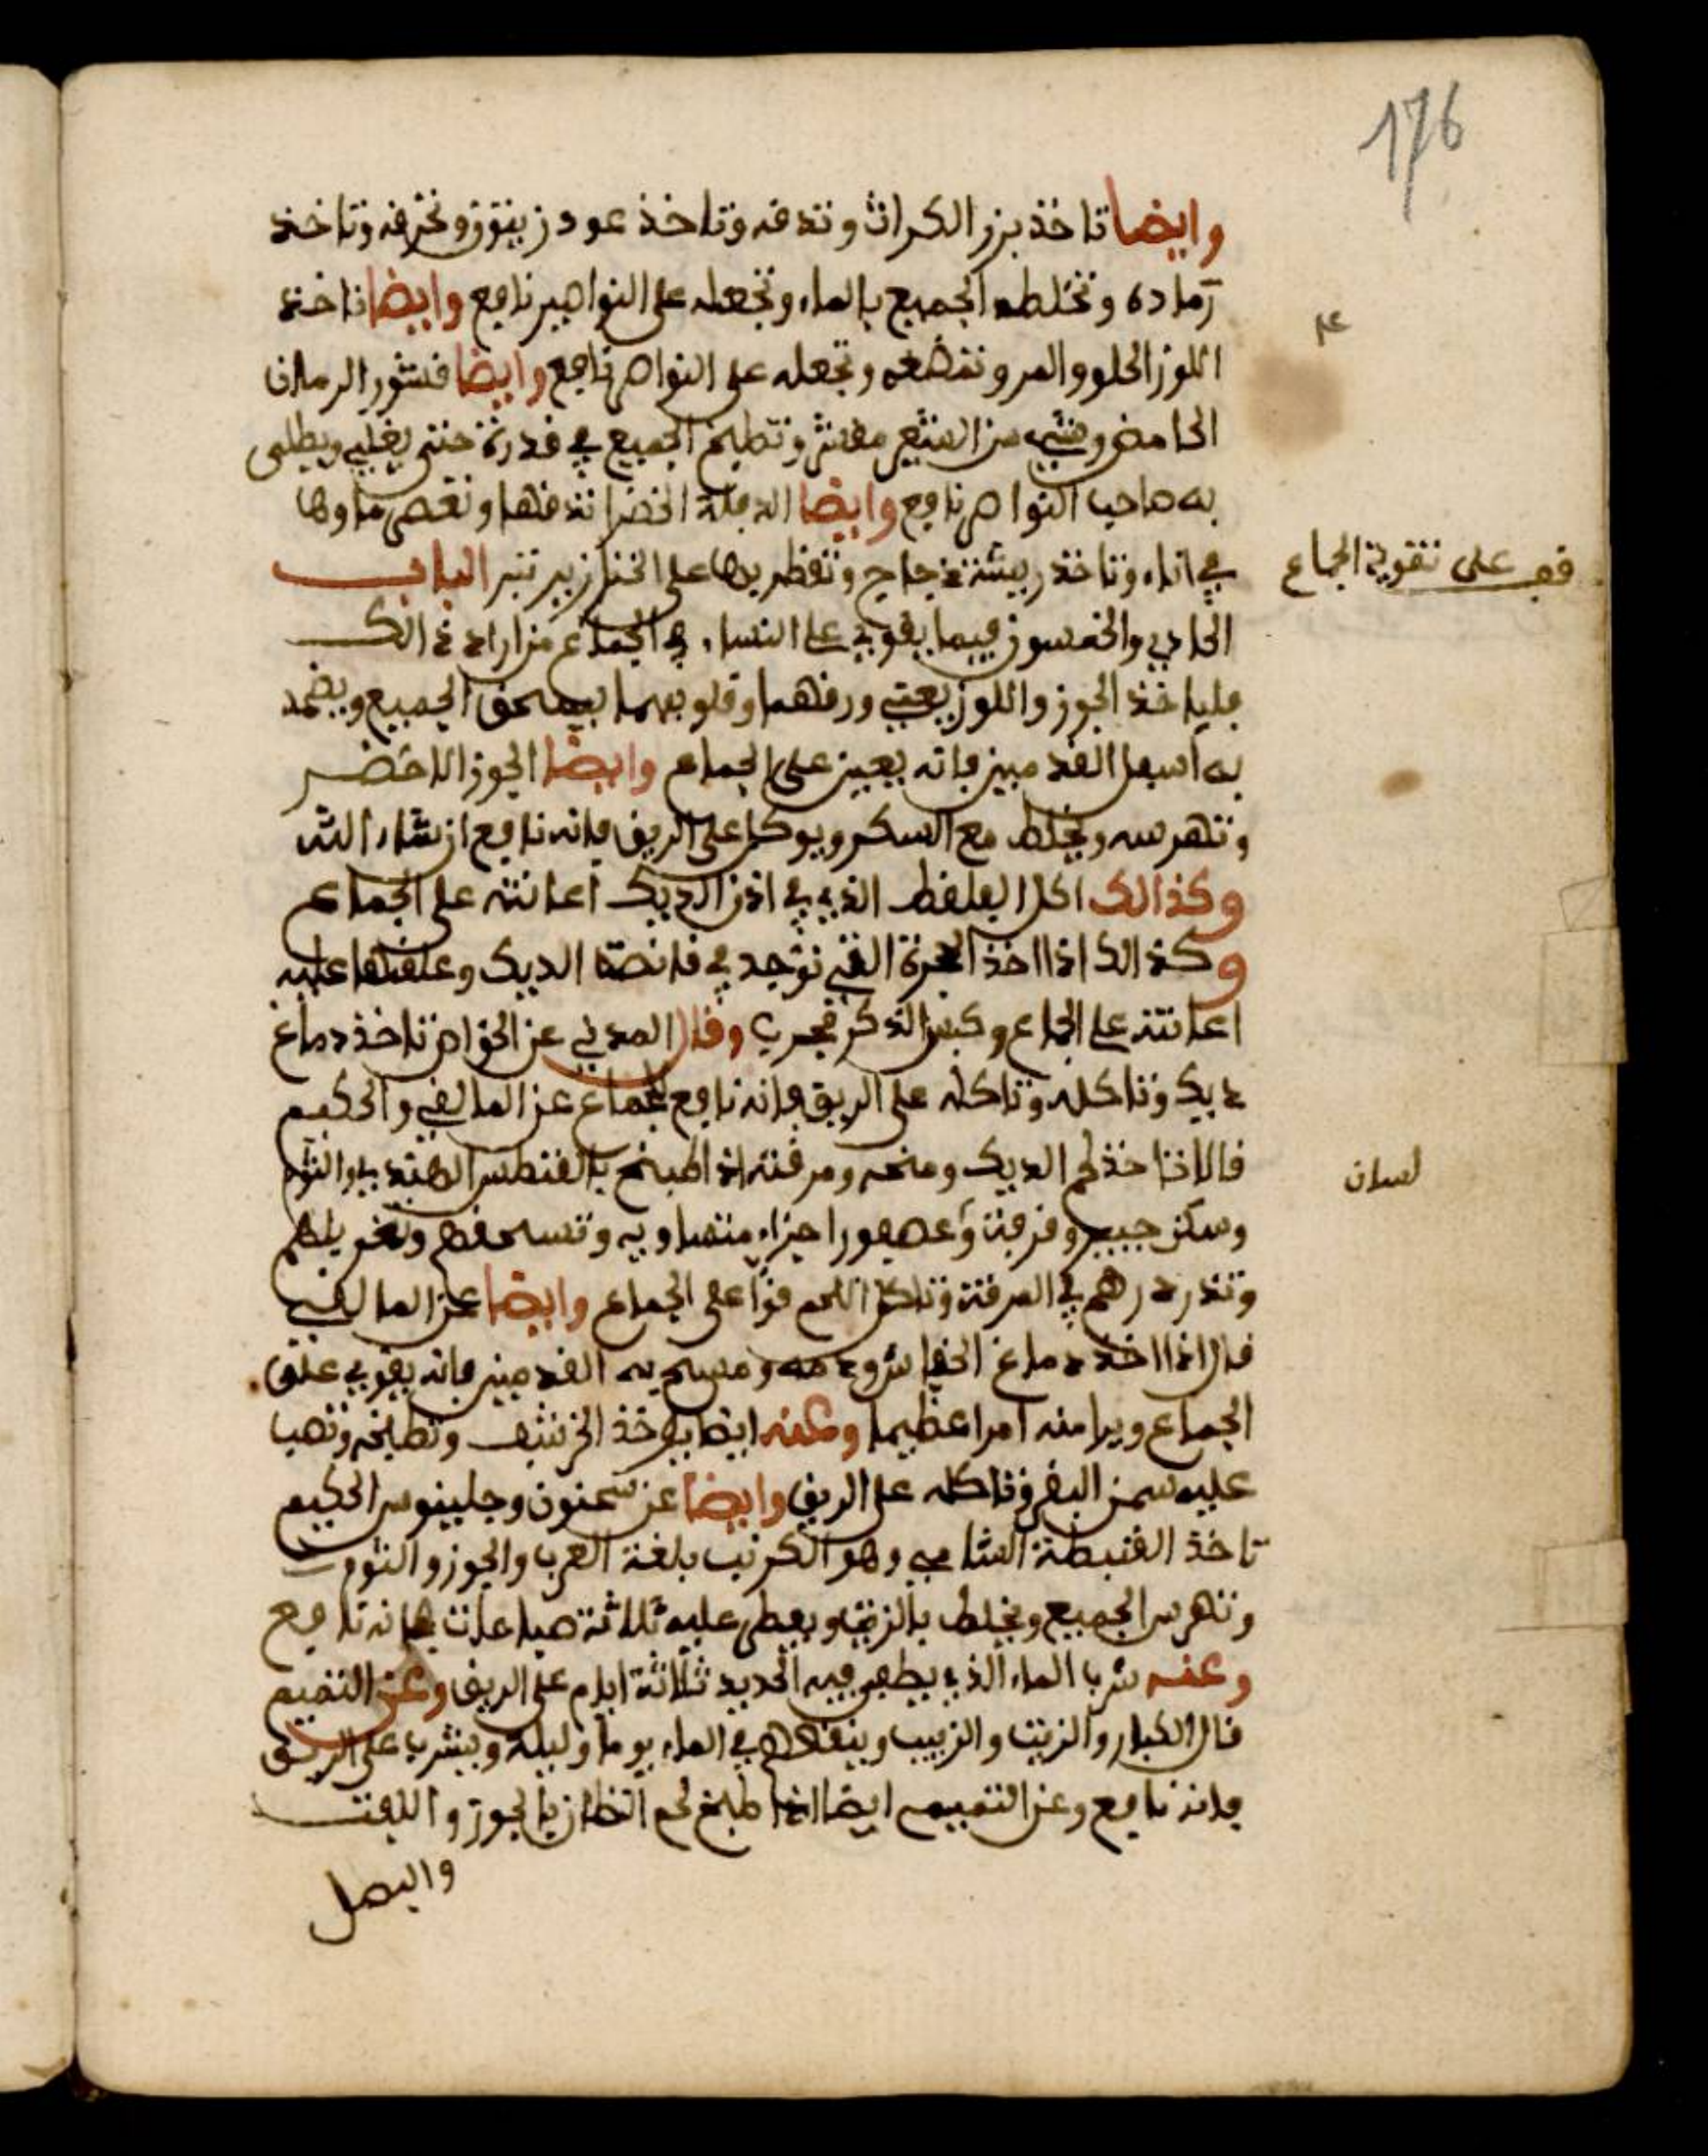 176
وايضا تاخذ بزر الكراث وتدقه وتاخذ عود زينوز وتحرقه وتاخذ
رماده وتخلطه الجميع بالماء وتجعله على النواصير نافع وايضا تاخذ
اللوز الحلو والمر وتمضغه وتجعله على النواصر نافع وايضا قشور الرمان
الحامض وشيء من الشعير مقشر وتطبخ الجميع في قدرة حتى يغلي ويطلى
به صاحب النواصر نافع وايضا الدفلة الخضرا تدقها وتعصر ماوها
في اناء وتاخذ ريشة دجاج وتقطر بها على الخنازير تبر الباب
قف على تقوية الجماع
الحادي والخمسون فيما يقوي على النساء في الجماع من اراد ذالك
فلياخذ الجوز واللوز يعني ورقهما وقلوبهما يسحق الجميع ويضمد
به اسفل القدمين فانه يعين على الجماع وايضا الجوز الاخضر
وتهرسه ويخلط مع السكر ويوكل على الريق فانه نافع ان شاء الله
وكذالك اكل الذي في اذن الديك اعانته على الجماع
وكذالك اذا اخذ الحجرة التي توجد في قانصة الديك وعلقتها عليه
اعانته على الجماع وكبس الذكر مجرب وقال المدني عن الخواص تاخذ دماغ
ديك وتاكله وتاكله على الريق فانه نافع للجماع عن المالقي والحكيم
قالا تاخذ لحم الديك ومخه ومرقته اذا طبخ الهندي والثوم
لسان
وسكنجبير وقرفة وعصفور اجزاء متساويه وتسحقهم وتغربلهم
وتذردرهم في المرقة وتاكل اللحم قوا على الجماع وايضا عن المالقي
قال اذا اخذ دماغ الخفاش ودمه ومسح به القدمين فانه يقوي على
الجماع ويرا منه امرا عظيما وعنه ايضا يوخذ الخرشف وتطبخه وتصب
عليه سمن البقر وتاكله على الريق وايضا عن سحنون وجلينوس الحكيم
تاخذ القنبطة الشامي وهو الكرنب بلغة العرب والجوز والثوم
وتهرس الجميع ويخلط بالزيت ويعطى عليه ثلاثة صباعات فانه نافع
وعنه شرب الماء الذي يطفى فيه الحديد ثلاثة ايام على الريق وعن التميم
قال الكبار والزيت والزبيب وينقعهم في الماء يوما وليلة ويشرب على الريق
فانه نافع وعن التميم ايضا اذا طبخ لحم الضان بالجوز واللفت
والبصل